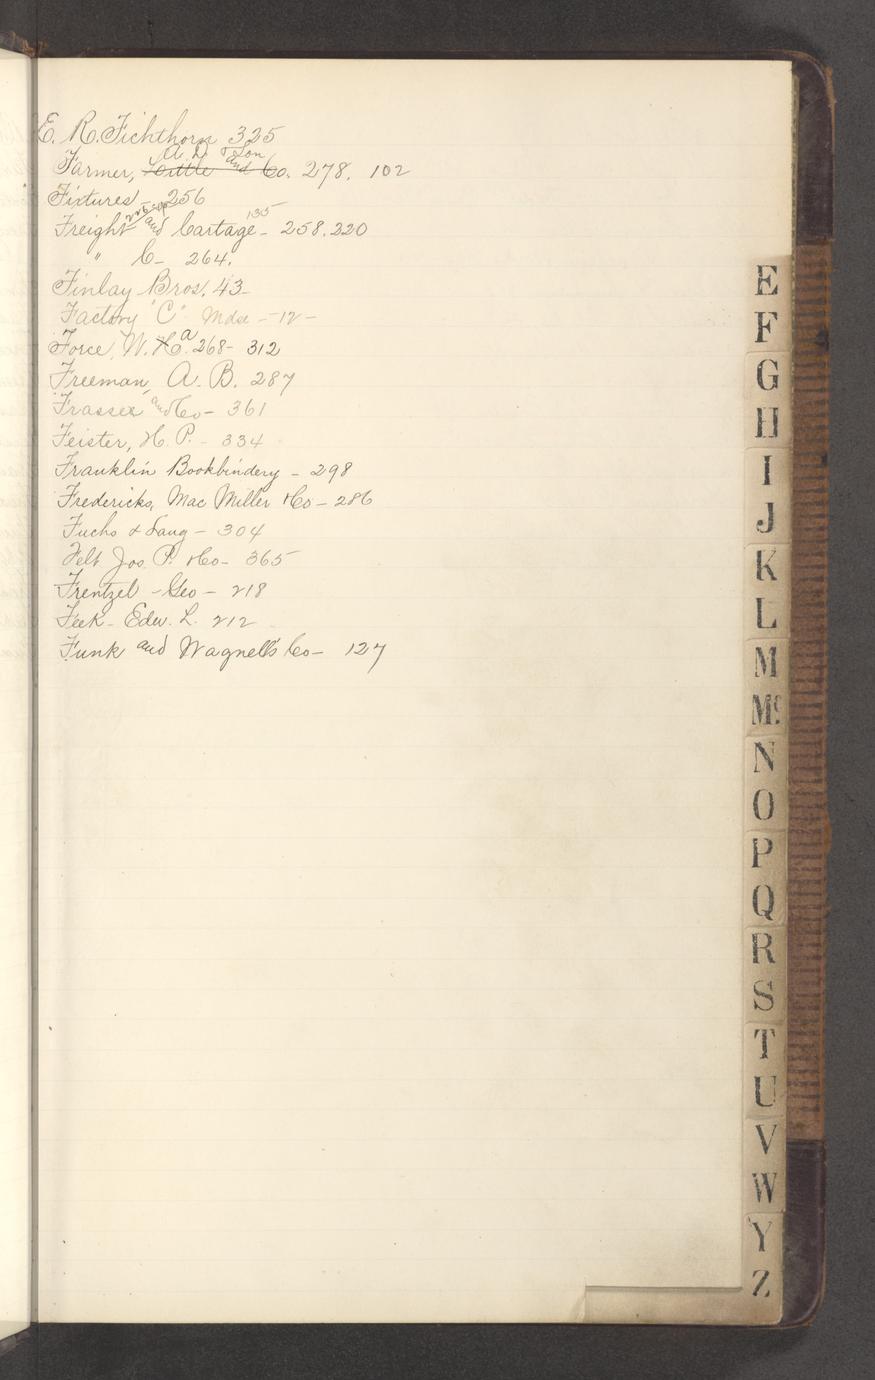 E. R. Fichthorn 325
A. D. & Son
Farmer, Little and Co. 278. 102
Fixtures - 256
135
Freight and Cartage - 258.220
" C - 264.
Finlay Bros. 43 -
Factory "C" Mdse - 12 -
Force, W. A. 268 - 312
Freeman, A. B. 287
Frasser and Co - 361
Feister, H. P. - 334
Franklin Bookbindery - 298
Fredericks, Mac Miller & Co - 286
Fuchs & Lang - 304
Felt Jos. P. & Co - 365
Frentzel - Geo - 218
Feek - Edw. L. 212
Funk and Wagnells Co - 127
E
F
G
H
I
J
K
L
M
Mc
N
O
P
Q
R
S
T
U
V
W
Y
Z